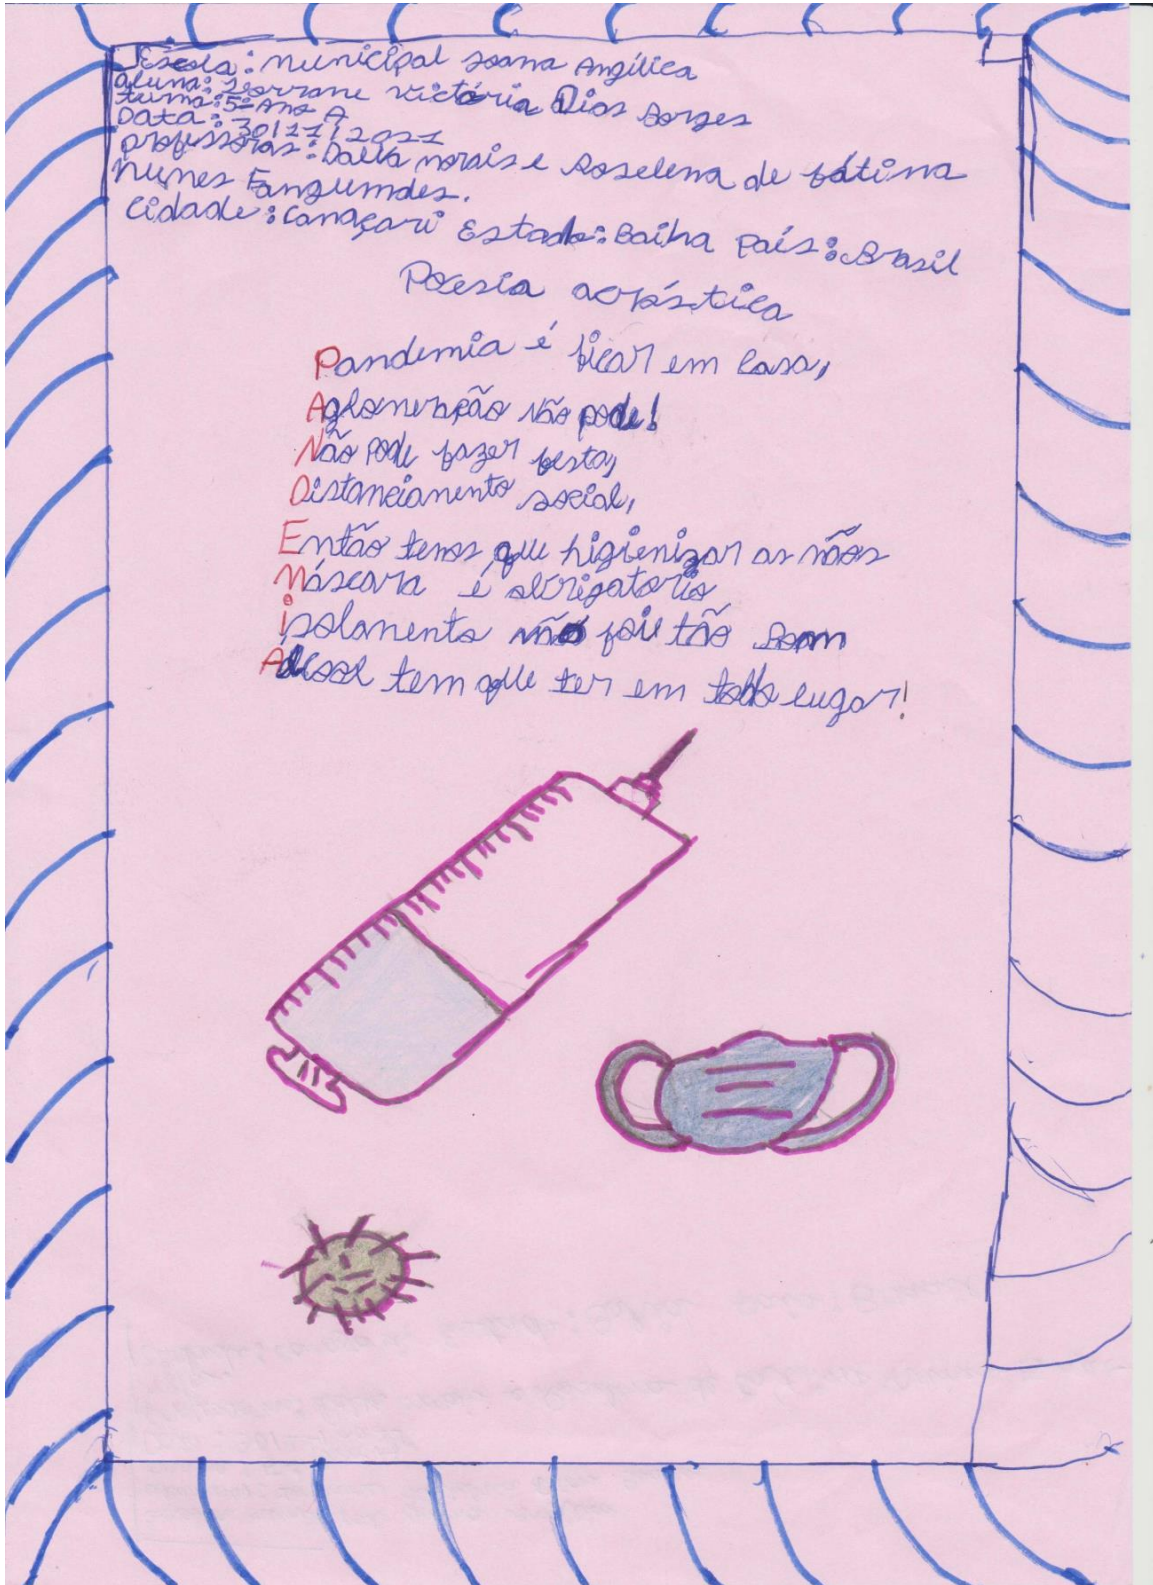 Escola: municipal Joana Angélica
aluna: victória Dias Borges
turma: 5º Ano A
Data: 30/11/2021
professoras: Dalva morais e Roselena de fátima
Nunes Fangumdes.
cidade: Camaçari Estado: Baiha País: Brasil
Poesia acróstica
Pandemia é ficar em casa,
Aglomeração não pode!
Não pode fazer festa,
Distanciamento social,
Então temos que higienizar as mãos
Máscara é obrigatorio
isolamento não foi tão bom
Álcool tem que ter em todo lugar!